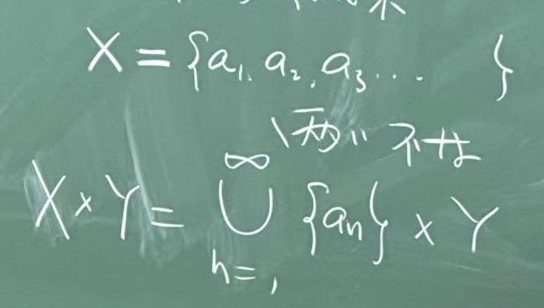 X = {a₁, a₂, a₃ ... }
X × Y = ∞ ⋃ n=1 {aₙ} × Y